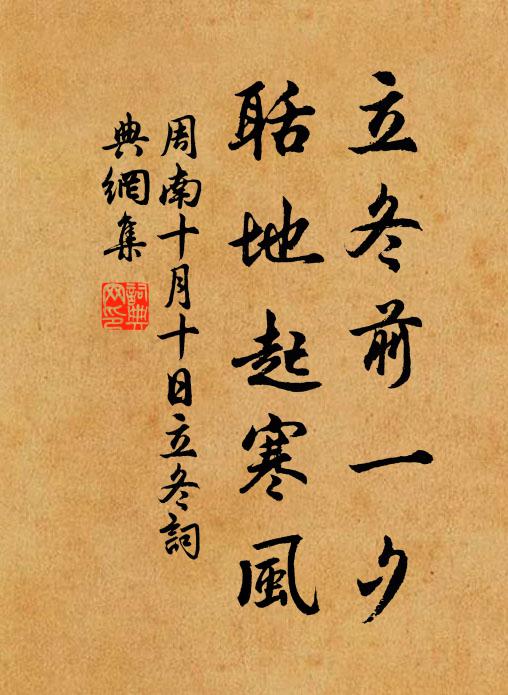 立冬前一夕
聒地起寒風
周南十月十日立冬詞
典網集
詞典網印